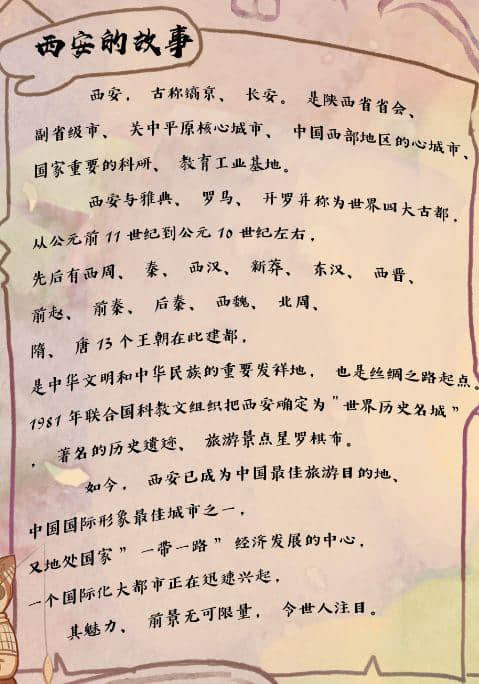 西安的故事
西安， 古称镐京、 长安。 是陕西省省会、
副省级市、 关中平原核心城市、 中国西部地区的心城市、
国家重要的科研、 教育工业基地。
西安与雅典、 罗马、 开罗并称为世界四大古都，
从公元前 11 世纪到公元 10 世纪左右，
先后有西周、 秦、 西汉、 新莽、 东汉、 西晋、
前赵、 前秦、 后秦、 西魏、 北周、
隋、 唐 13 个王朝在此建都，
是中华文明和中华民族的重要发祥地， 也是丝绸之路起点。
1981 年联合国科教文组织把西安确定为 "世界历史名城"
， 著名的历史遗迹、 旅游景点星罗棋布。
如今， 西安已成为中国最佳旅游目的地、
中国国际形象最佳城市之一，
又地处国家 " 一带一路 " 经济发展的中心，
一个国际化大都市正在迅速兴起，
其魅力、 前景无可限量， 令世人注目。